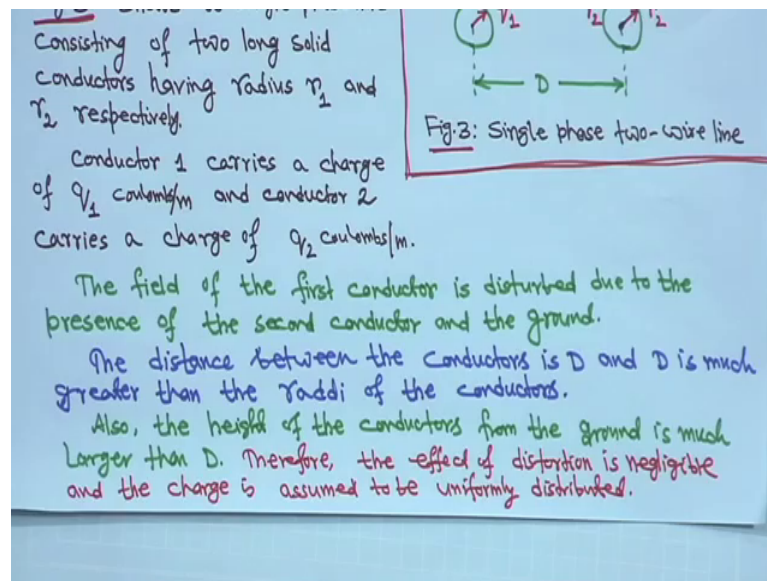 consisting of two long solid
conductors having radius r1 and
r2 respectively.
Conductor 1 carries a charge
of q1 coulombs/m and conductor 2
carries a charge of q2 coulombs/m.
r1
r2
D
Fig.3: Single phase two-wire line
The field of the first conductor is disturbed due to the
presence of the second conductor and the ground.
The distance between the conductors is D and D is much
greater than the raddi of the conductors.
Also, the height of the conductors from the ground is much
Larger than D. Therefore, the effect of distortion is negligible
and the charge is assumed to be uniformly distributed.